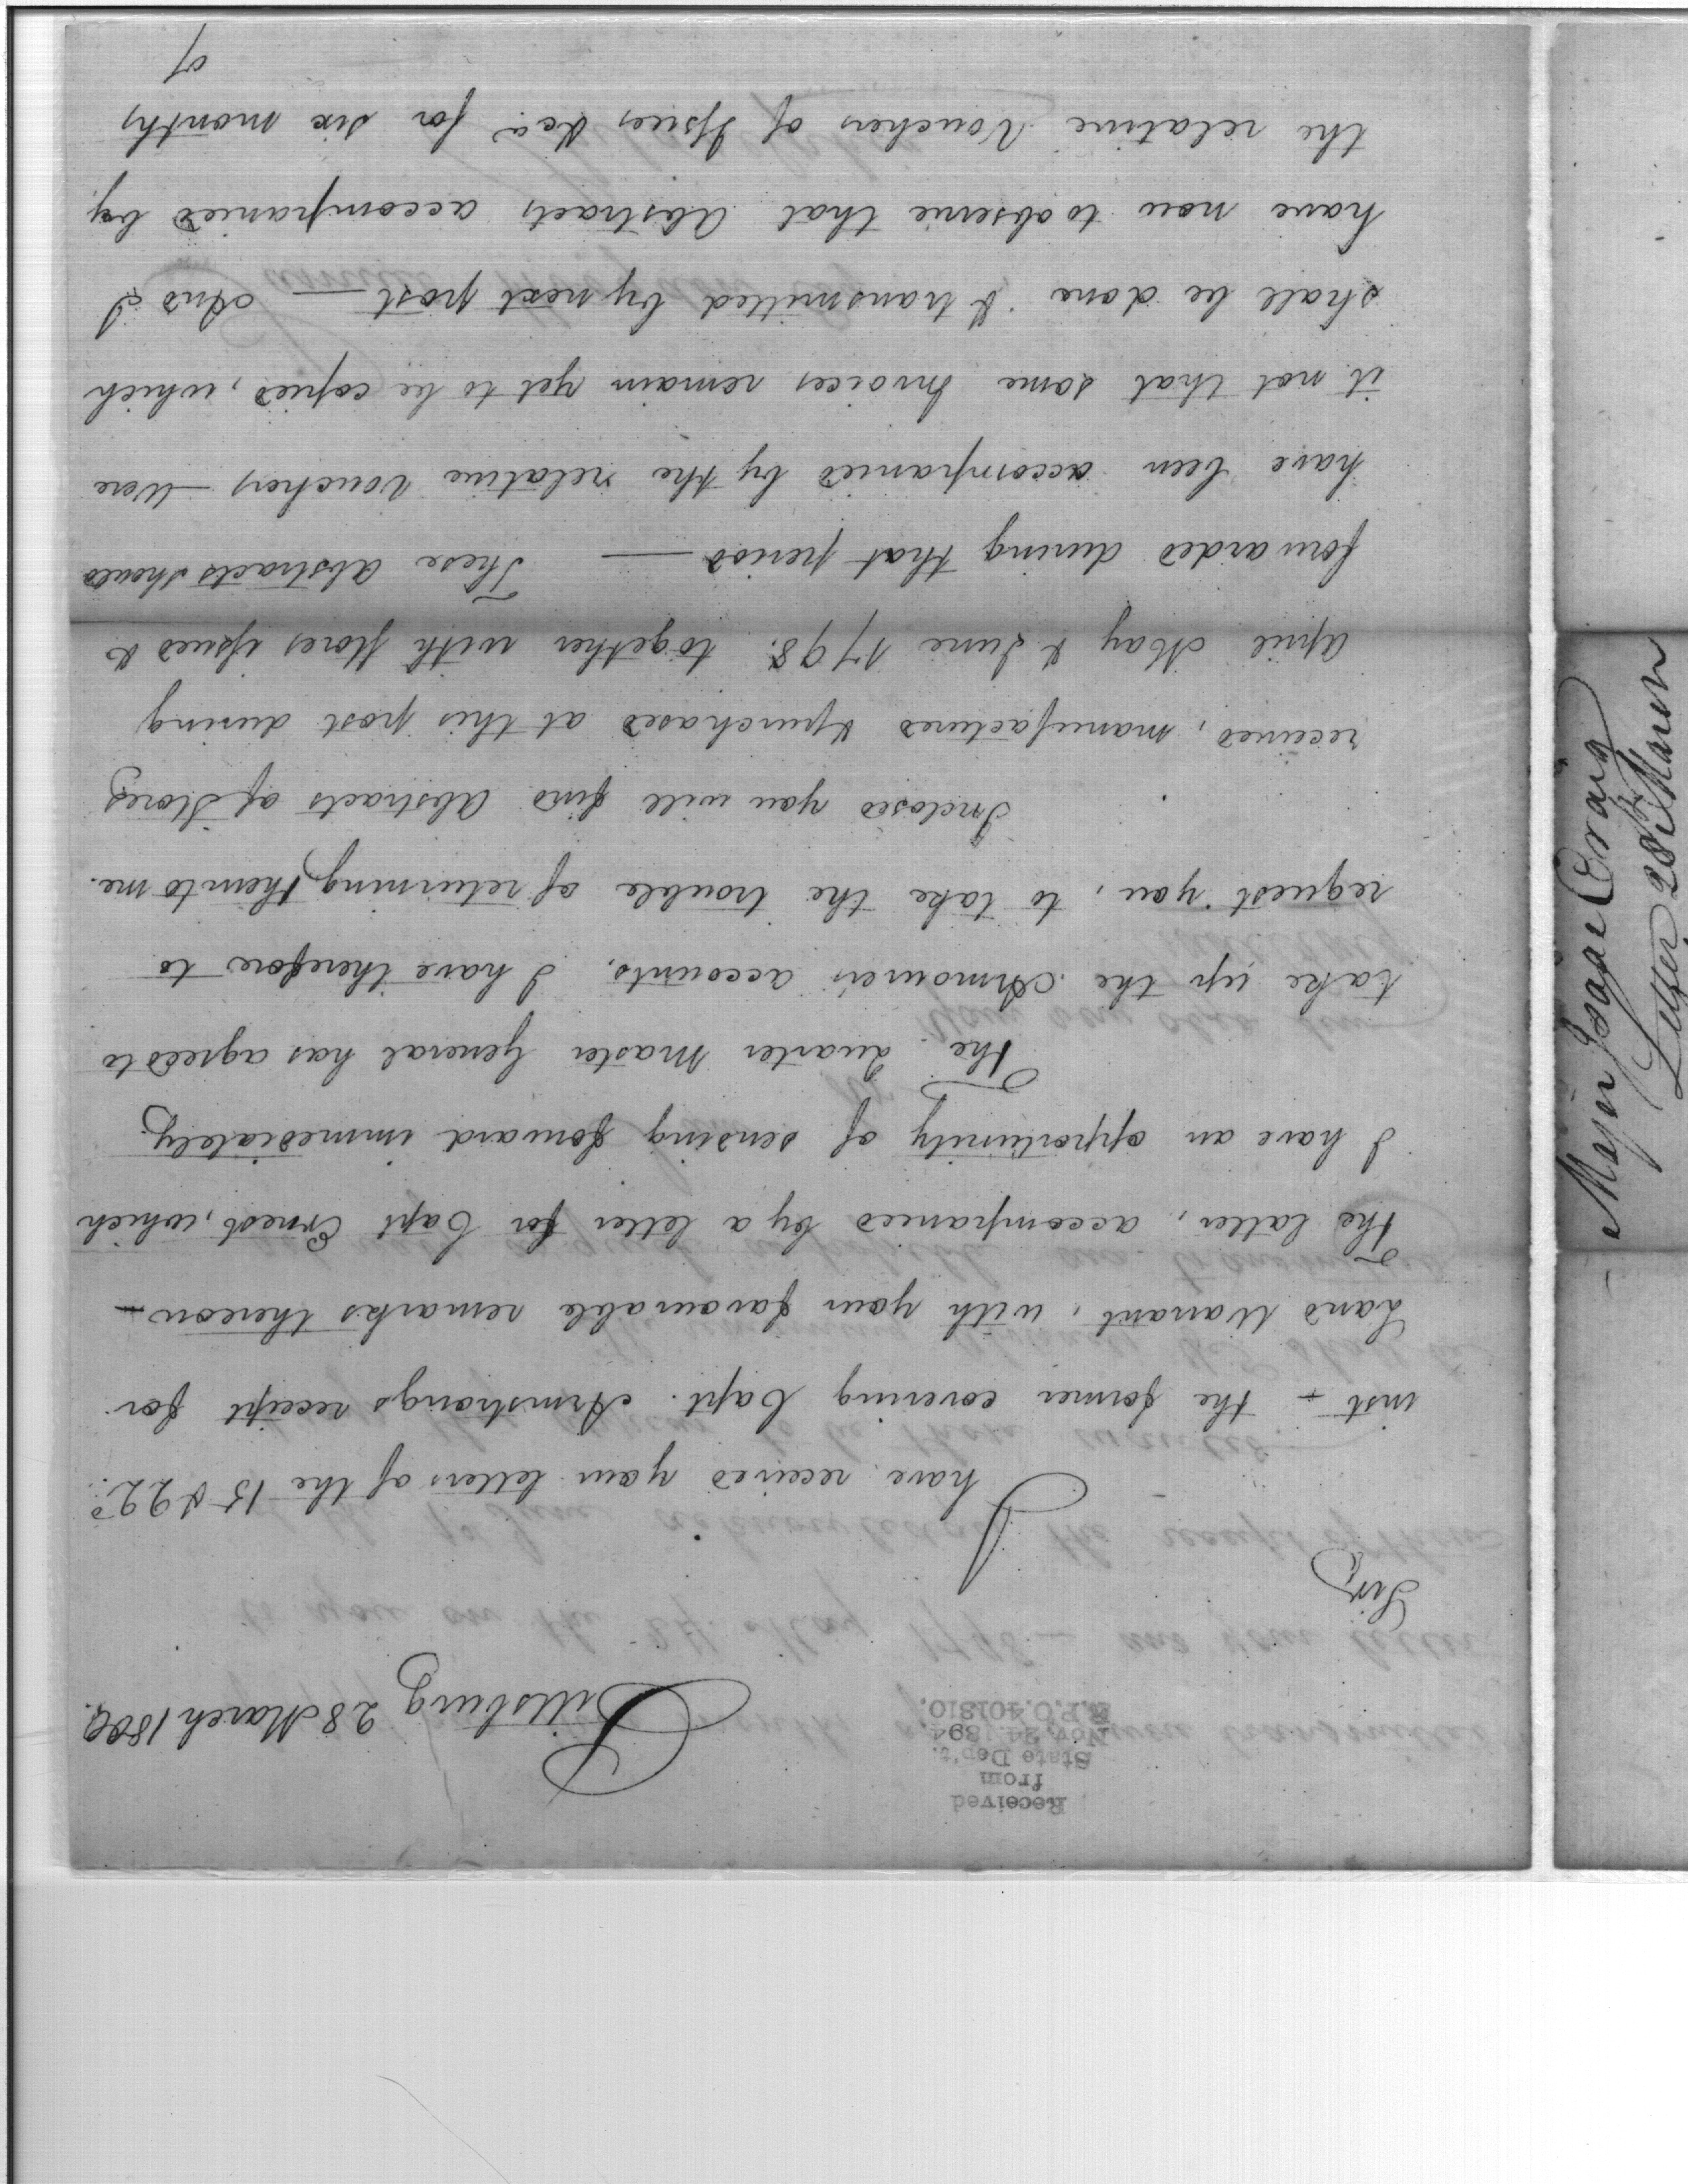 Received
from
State Dep't.
Nov. 24 1894.
R.&P.O. 401810.
Pittsburg 28 March 1800.
Sir
I have received your letters of the 15 & 22d.
inst - the former covering Capt. Armstrongs receipt for
Land Warrant, with your favourable remarks thereon —
The latter, accompanied by a letter for Capt Ernest, which
I have an opportunity of sending forward immediately.
The Quarter Master General has agreed to
take up the Armourers accounts. I have therefore to
request you, to take the trouble of returning them to me.
Inclosed you will find Abstracts of Stores
received, manufactured & purchased at this post during
April May & June 1798. together with Stores issued &
forwarded during that period — These Abstracts should
have been accompanied by the relative Vouchers — Were
it not that some Invoices remain yet to be copied, which
shall be done & transmitted by next post — And I
have now to observe that Abstracts accompanied by
the relative Vouchers of Issues &ca for six months
of
Major Isaac Craig
Letter 28th March